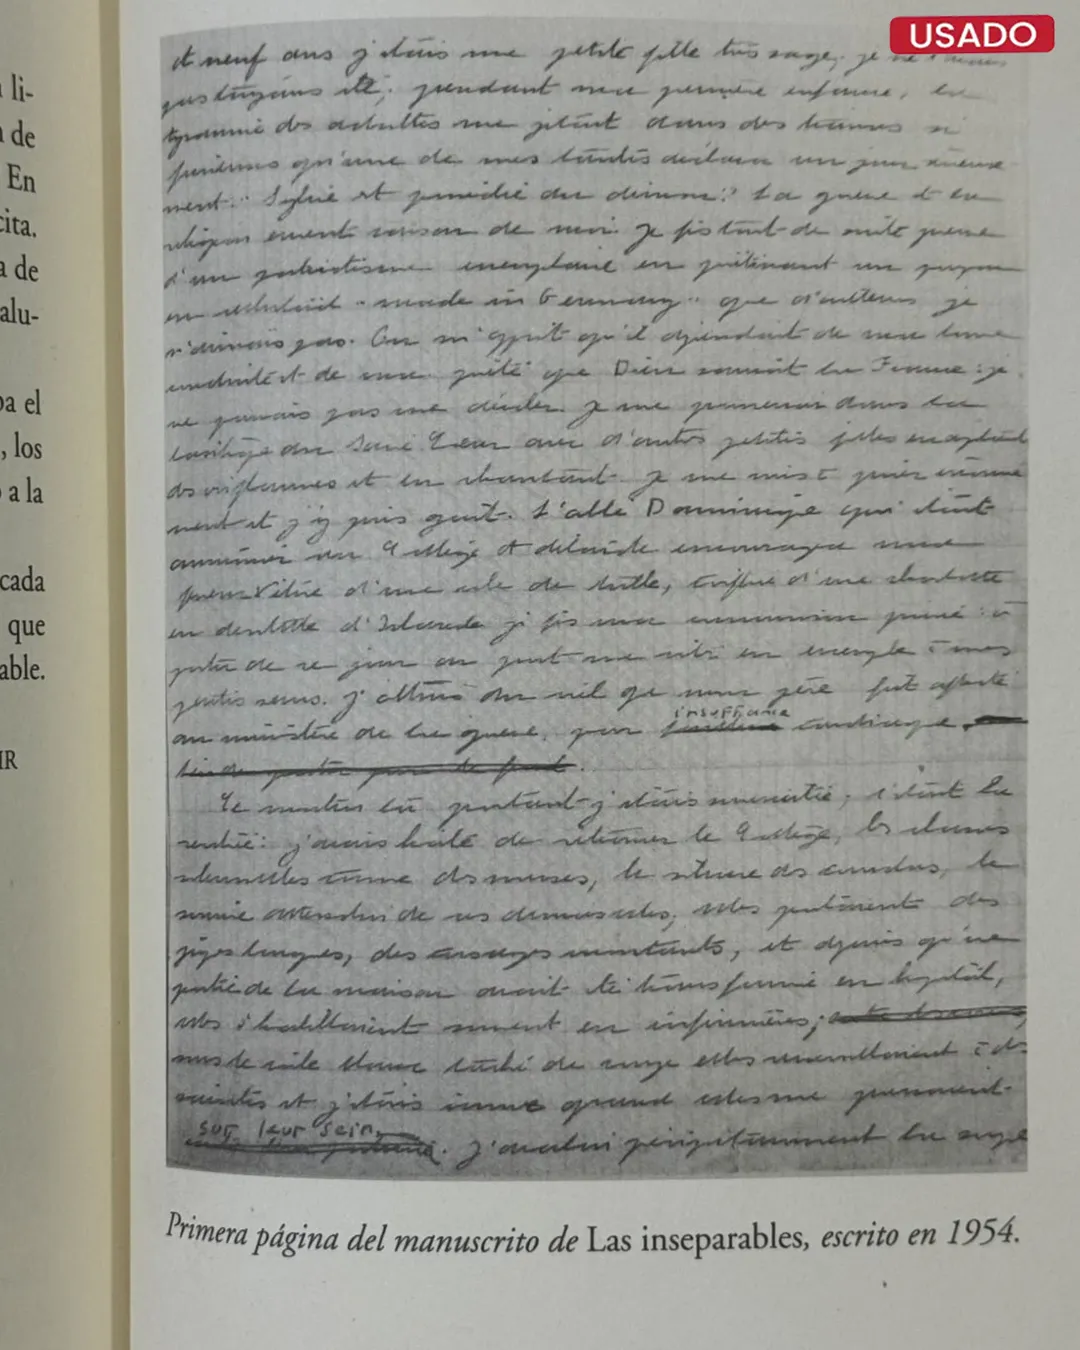 USADO
li-
de
En
cita.
a de
alu-
ba el
, los
a la
cada
que
able.
IR
et neuf ans j'étais une petite fille très sage, je ne l'avais
pas toujours été; pendant ma première enfance, la
tyrannie des adultes me jetait dans des transes si
furieuses qu'une de mes tantes déclara un jour sérieuse
ment: "Sylvie est possédée du démon." La guerre et la
religion eurent raison de moi. Je fis tout de suite preuve
d'un patriotisme exemplaire en piétinant un poupon
en celluloïd "made in Germany" que d'ailleurs je
n'aimais pas. On m'apprit qu'il dépendait de ma bonne
conduite et de ma piété que Dieu sauvât la France: je
ne pouvais pas me dérober. Je me promenai dans la
basilique du Sacré Cœur avec d'autres petites filles en agitant
des oriflammes et en chantant. Je me mis à prier énormé
ment et j'y pris goût. L'abbé Dominique qui était
aumônier au Collège Adélaïde encouragea ma
ferveur. Vêtue d'une robe de tulle, coiffée d'une charlotte
en dentelle d'Irlande je fis ma communion privée: à
partir de ce jour on put me citer en exemple à mes
petites sœurs. J'obtins du ciel que mon père fut affecté
au ministère de la guerre, pour
insuffisance
cardiaque.
Ce matin là pourtant j'étais surexcitée; c'était la
rentrée: j'avais hâte de retrouver le Collège, les classes
solennelles comme des messes, le silence des couloirs, le
sourire attendri de ces demoiselles; elles portaient des
jupes longues, des corsages montants, et depuis qu'une
partie de la maison avait été transformée en hôpital,
elles s'habillaient souvent en infirmières;
sous le voile blanc taché de rouge elles ressemblaient à des
saintes et j'étais émue quand elles me pressaient
sur leur sein.
J'avalai précipitamment la soupe
Primera página del manuscrito de Las inseparables, escrito en 1954.